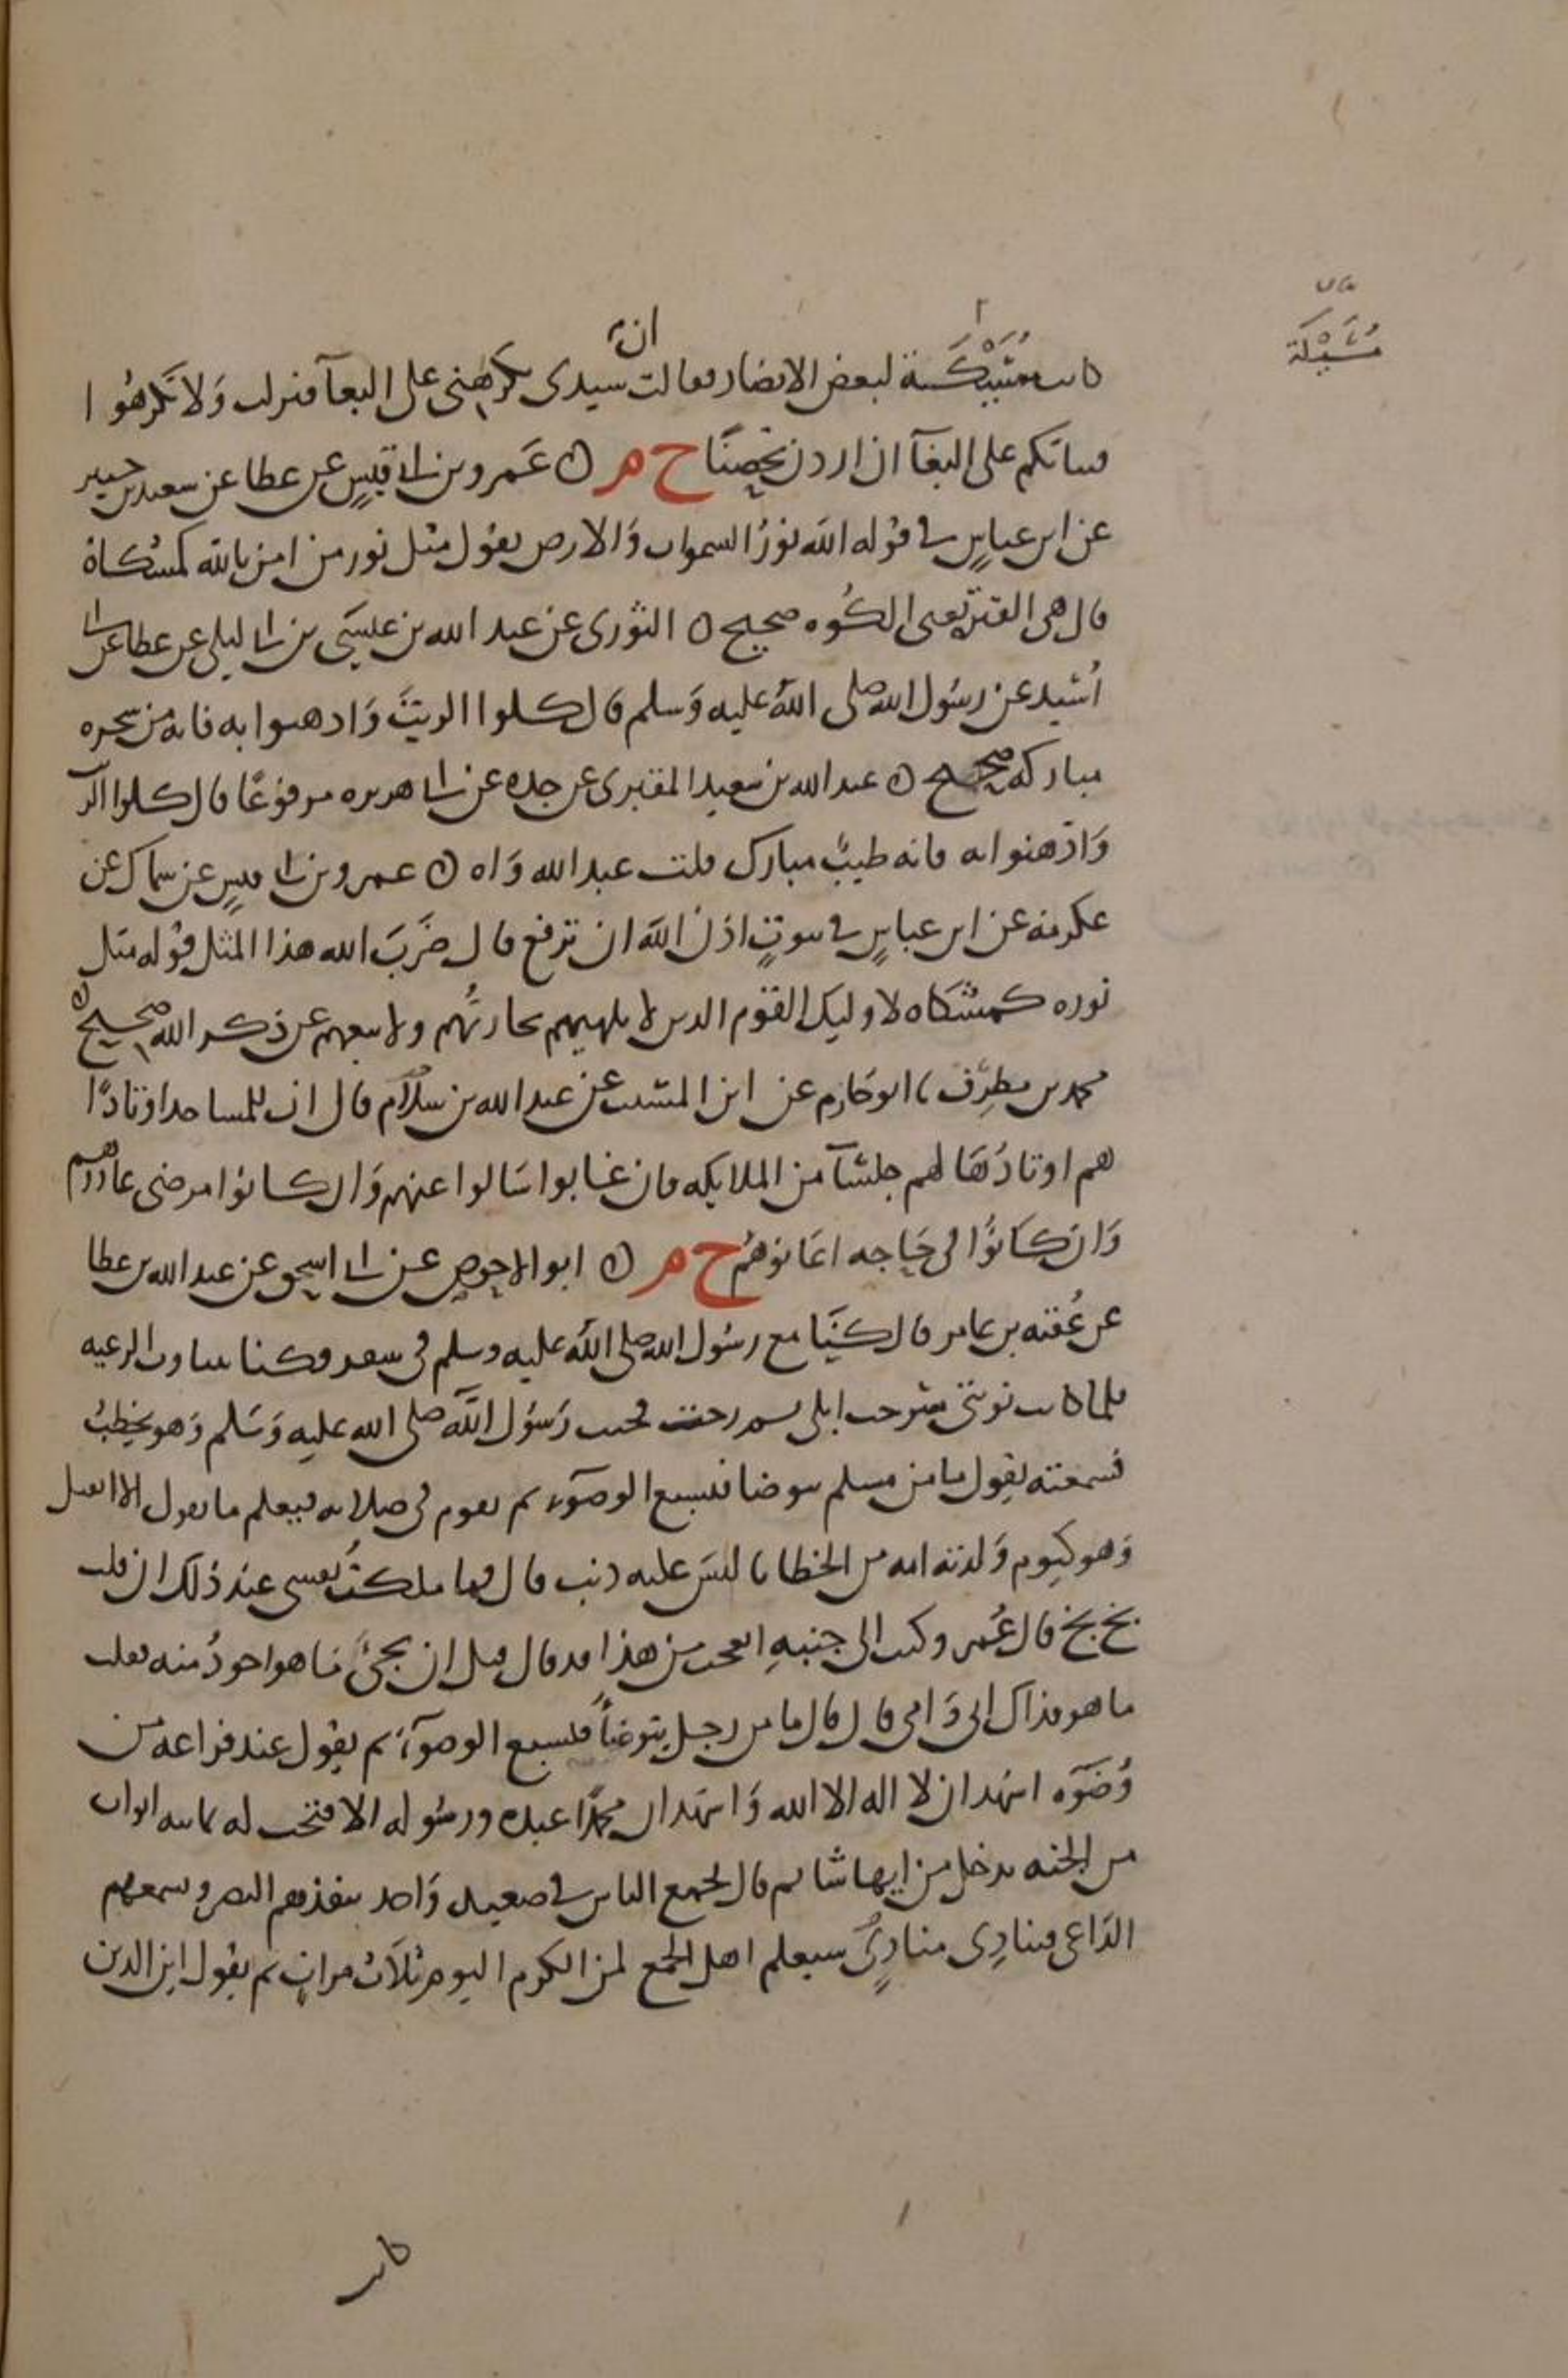 مُسَيْكَة
ان
كانت مُسَيْكَة لبعض الانصار فقالت سيدى يكرهنى على البغآ فنزلت وَلا تُكرهُوا
فتياتكم على البغآ ان اردن تحصنًا خ م ه عَمرو بن ابى قيسٍ عن عطا عن سعيد بن جبير
عن ابن عباسٍ فى قوله اللَّه نورُ السموات وَالارض يقول مثل نور من امن بالله كمشكاة
قال هى القتر يعنى الكُوه صحيح ه الثورى عن عبد الله بن عيسَى بن ابى ليلى عن عطا عن ابى
اُسَيد عن رسُول الله صلى اللهُ عليه وَسلم قال كلوا الزيتَ وَادهنوا به فانه من شجره
مباركه صحيح ه عبد الله بن سعيد المقبرى عن جده عن ابى هريره مرفوعًا قال كلوا الزيت
وَادهنوا به فانه طيبٌ مبارك قلت عبد الله وَاه ه عمرو بن ابى قيسٍ عن سماك عن
عكرمة عن ابن عباسٍ فى بيوتٍ اذن اللَّه ان ترفع قال ضَربَ الله هذا المثل قوله مثل
نوره كمشكاه لاوليك القوم الدين لا تلهيهم تجارتُهم ولا بيعهم عن ذكر الله صحيح ه
محمد بن مطرِّف نا ابو حَازم عن ابن المسيب عن عبد الله بن سلام قال ان للمساجد اوتادًا
هم اوتادُهَا لهم جلسَآ من الملايكه فان غابوا سَالوا عنهم وَان كانوا مرضى عادوهم
وَان كانُوا فى حَاجه اعَانوهُم خ م ه ابو الاحوص عن ابى اسحق عن عبد الله بن عطا
عن عُقبه بن عامر قال كنَّا مع رسُول الله صلى اللهُ عليه وسلم فى سفر وكنا نتناوب الرعيه
فلما كانت نوبتى سَرحت ابلى ثم رحت فجيت رَسُول اللَّه صلى الله عليه وَسَلم وَهو يخطبُ
فسمعته يقول ما من مسلم يتوضا فيسبغ الوضوَء ثم يقوم فى صلاته فيعلم ما يقول الا انفتل
وَهو كيوم وَلدته امه من الخطايا ليسَ عليه ذنب قال فما ملكتُ نفسى عند ذلك ان قلت
بخ بخ قال عُمر وكنت الى جنبهِ اتعجب من هذا قد قال قبل ان تجئ مَا هو اجودُ منه فقلت
ما هو فداك ابى وَامى قال قال ما من رجل يتوضأ فيسبغ الوضوَء ثم يقول عند فراغه من
وُضوَه اشهد ان لا اله الا الله وَاشهد ان محمدًا عبده ورسُوله الا فتحت له ثمانيه ابواب
من الجنه يدخل من ايها شا ثم قال يجمع الناس فى صعيد وَاحد ينفذهم البصر ويسمعهم
الدَاعى فينادِى منادٍى سيعلم اهل الجمع لمن الكرم اليوم ثلَاث مراتٍ ثم يقول اين الدين
كانت